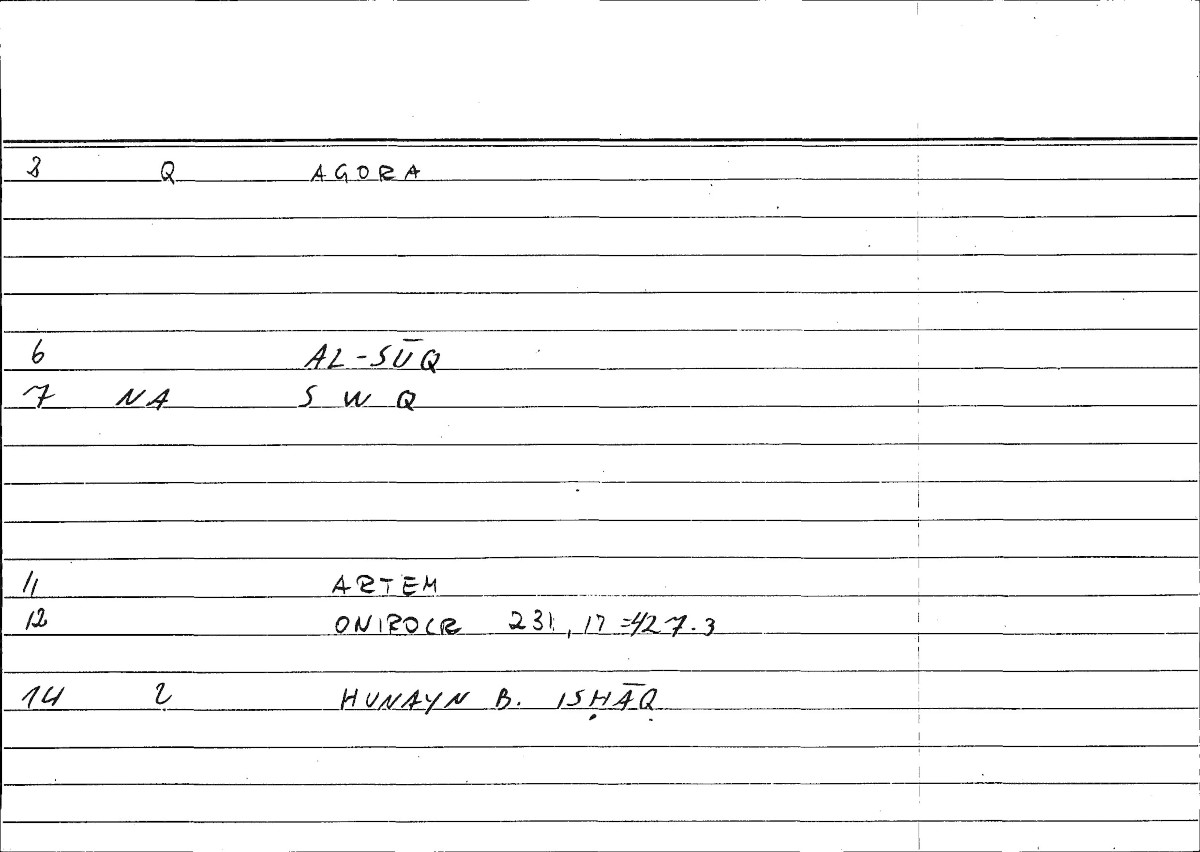 3 Q AGORA
6 AL-SŪQ
7 NA S W Q
11 ARTEM
12 ONIROCR 231, 17 = 427.3
14 2 HUNAYN B. ISḤĀQ